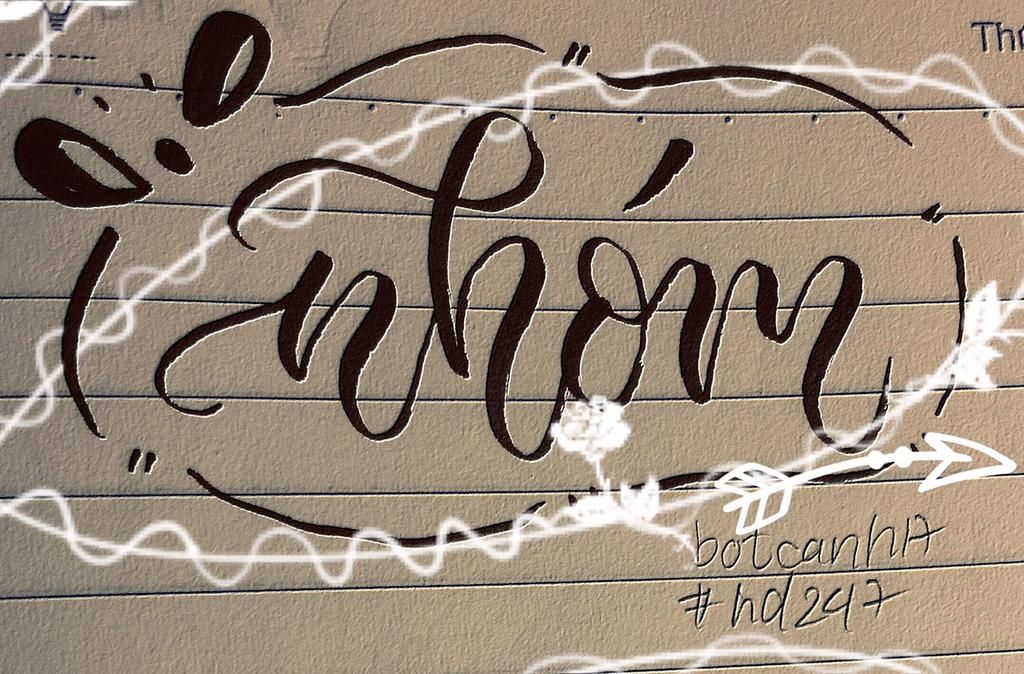 Thr
nhóm
botcanh17
#hd247